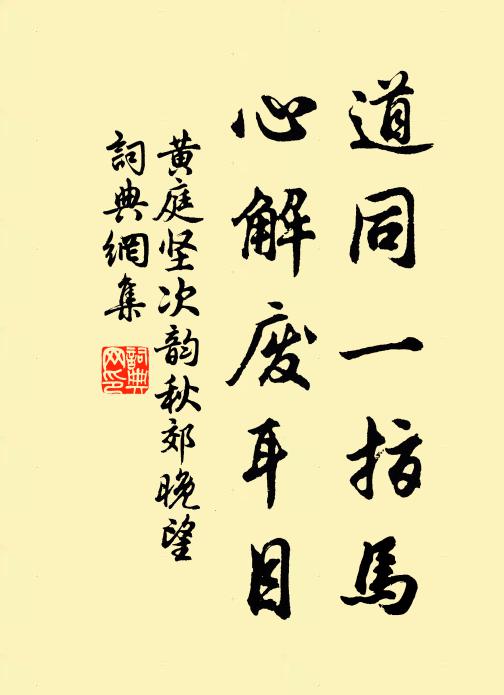 道同一指馬
心解废耳目
黄庭坚次韵秋郊晚望
詞典網集
詞典
网印